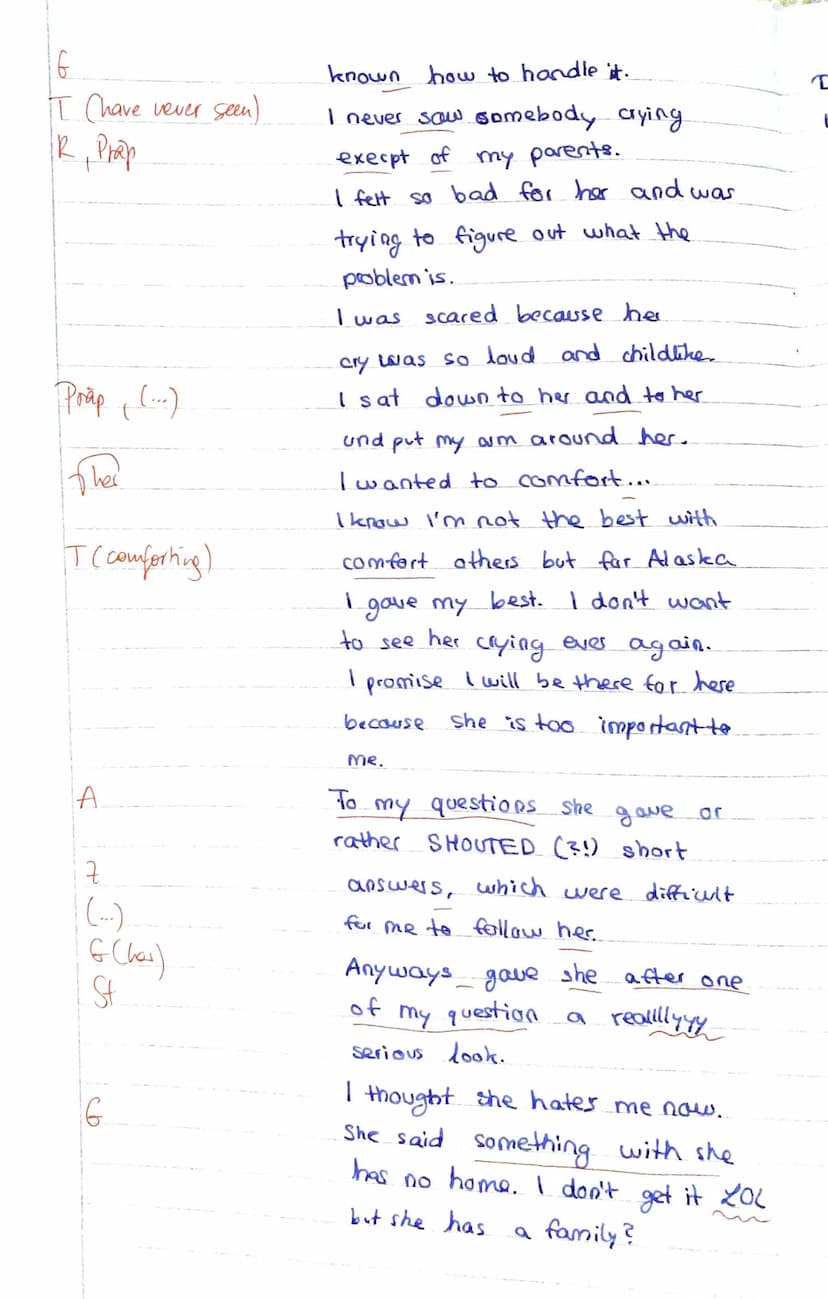 G known how to handle it.
T (have never seen) I never saw somebody crying
R, Präp execpt of my parents.
I felt so bad for her and was
trying to figure out what the
problem is.
I was scared because her
cry was so loud and childlike.
Präp, (...) I sat down to her and to her
und put my arm around her.
her I wanted to comfort...
I know I'm not the best with
T (comforting) comfort others but for Alaska
I gave my best. I don't want
to see her crying ever again.
I promise I will be there for here
because she is too important to
me.
A To my questions she gave or
rather SHOUTED (?!) short
Z answers, which were difficult
(...) for me to follow her.
G (her) Anyways gave she after one
St of my question a reallllyyy
serious look.
G I thought she hates me now.
She said something with she
has no home. I don't get it LOL
but she has a family?